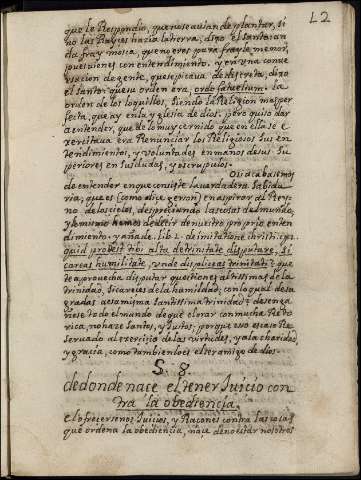 L2
que le Respondio, que no se auian de plantar, si
no las Rayses hazia la tierra, digo el santo: an
da fray mosca, que no eres para frayle menor,
pues vienes con entendimiento. y en vna conue
rsacion de gente, que se picaua de discreta, digo
el santo: que su orden era, ordo fatuelium. la
orden de los loquillos, siendo la Religion mas per
fecta, que ay en la yglesia de dios. pero quiso dar
a entender, que de lo muy cernido que en ella se e
xercitaua era Renunciar los Religiosos sus en
tendimientos, y voluntades en manos de sus su
periores en sus dudas, y escrupulos.
O si acabasemos
de entender en que consiste la verdadera sabidu
ria; que es (como dice geron) en aspirar al Rey
no de los cielos, despreciando las cosas del mundo,
y lo mismo hemos de decir de nuestro proprio enten
dimiento. y añade, lib. 2. de imitatione christi. cp. 1.
quid prodest tibi alta de trinitate disputare, si
careas humilitate, vnde displiceas trinitati? que
te aprouecha disputar questiones altissimas de la
trinidad, si careces de la humildad; con lo qual desa
gradas a esa misma santissima trinidad? desenga
ñese todo el mundo de que el orar con mucha Reto
rica, no haze santos, y Justos, porque eso esta so Re
seruado al exercisio de las virtudes, y a la charidad,
y gracia, como tambien lo es el ser amigo de dios.
S. 8.
de donde nace el tener Juicio con
tra la obediencia.
El ofrecersenos Juicios, y Raçones contra las cosas
que ordena la obediencia, nace de no estar nosotros